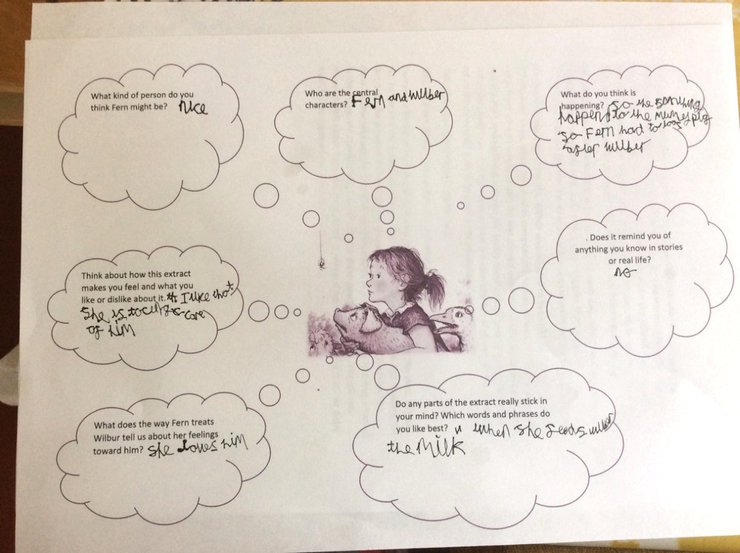 What kind of person do you
think Fern might be? nice
Who are the central
characters? Fern and wilber
What do you think is
happening? So the
happen to the
So Fern had to
after wilber
Does it remind you of
anything you know in stories
or real life?
no
Think about how this extract
makes you feel and what you
like or dislike about it. I like that
she is care
of him
What does the way Fern treats
Wilbur tell us about her feelings
toward him? she loves him
Do any parts of the extract really stick in
your mind? Which words and phrases do
you like best? when she feeds wilber
the milk